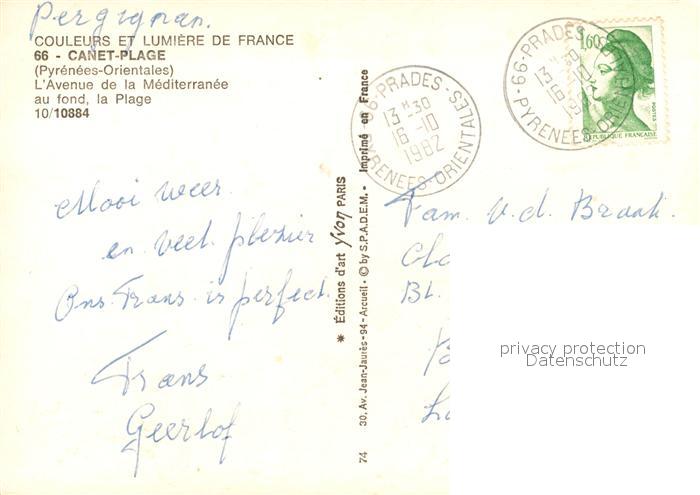 Pergignan.
COULEURS ET LUMIÈRE DE FRANCE
66 - CANET-PLAGE
(Pyrénées-Orientales)
L'Avenue de la Méditerranée
au fond, la Plage
10/10884
Mooi weer
en veel plezier
Ons Frans is perfect.
Frans
Geerlof
✶ Éditions d'art Yvon PARIS
30, Av. Jean-Jaurès - 94 - Arcueil - © by S.P.A.D.E.M. - Imprimé en France
74
66-PRADES
13 H-30
16-10
1982
PYRENEES-ORIENTALES
66-PRADES
13 H 30
16-10
19
PYRENEES-ORIENTALES
1,60
POSTES
REPUBLIQUE FRANÇAISE
Fam. v.d. Braak.
Bl.
privacy protection
Datenschutz